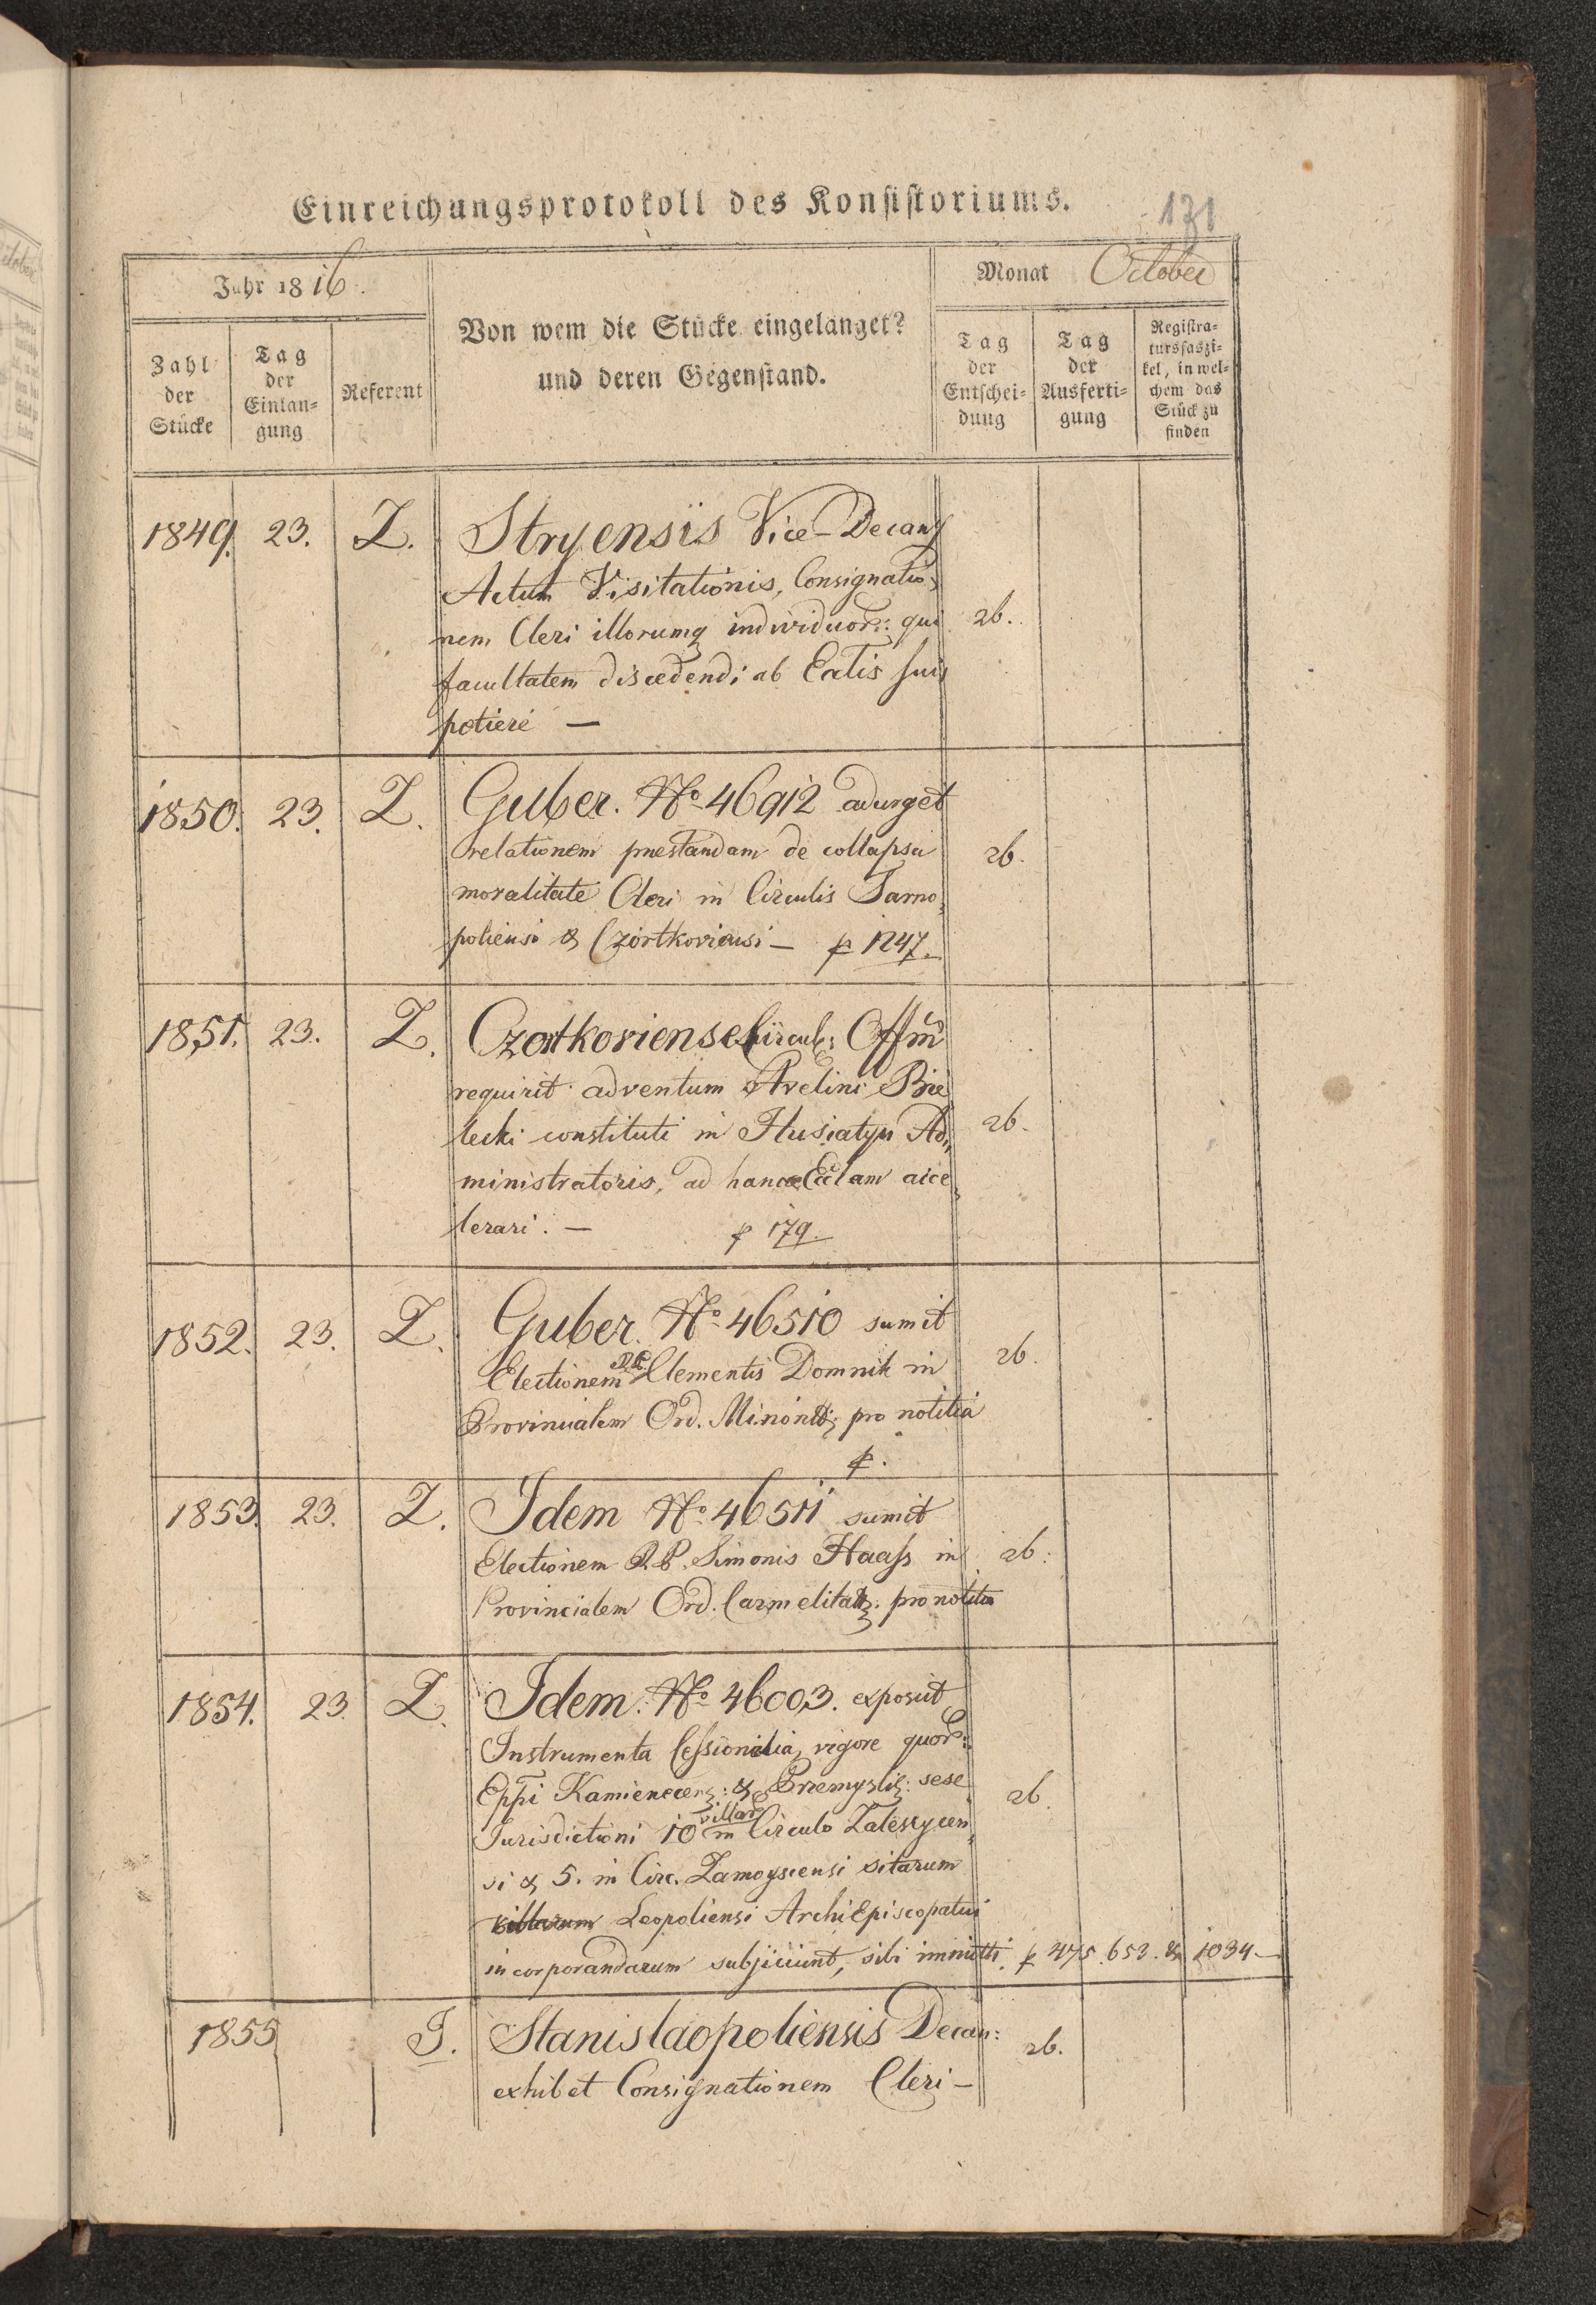 Einreichungsprotokoll des Konsistoriums.
131
Jahr 1816.
Monat October
Zahl der Stücke
Tag der Einlan=gung
Referent
Von wem die Stücke eingelanget?
und deren Gegenstand.
Tag der Entschei=dung
Tag der Ausferti=gung
Registra=tursfaszi=kel, in wel=chem das Stück zu finden
1849. 23. Z. Stryensis Vice-Decany
Actum Visitationis, Consignatio,
nem Cleri illorumq individuor: qui 26.
facultatem discedendi ab Eccliis suis
petiere —
1850. 23. Z. Guber. No 46912 adurget
relationem praestandam de collapsa 26.
moralitate Cleri in Circulis Tarno,
poliensi & Czortkoviensi — p 1247.
1851. 23. Z. Czortkoviense Circul: Offm
requirit adventum Avelini Bie
lecki constituti in Husiatyn Ad,, 26.
ministratoris, ad hance Ecclam acce,
lerari. — p 179.
1852. 23. Z. Guber. No 46510 sumit
Electionem P.P. Clementis Domnik in 26.
Provincialem Ord. Minorit: pro notitia
p.
1853. 23. Z. Idem No 46511 sumit
Electionem P.P. Simonis Haass in 26.
Provincialem Ord. Carmelitar: pro notitia
1854. 23. Z. Idem. No 46003. exposcit
Instrumenta Cessionalia, vigore quor:
Eppi Kamienecens: & Przemysli: sese 26.
Jurisdictioni 10 villar in Circulo Zalesycen,
si & 5. in Circ. Zamoysciensi sitarum
villarum Leopoliensi ArchiEpiscopatui
incorporandarum subjiciunt, sibi immitti. p 475. 653. & 1034 —
1855 J. Stanislaopoliensis Decan: 26.
exhibet Consignationem Cleri —